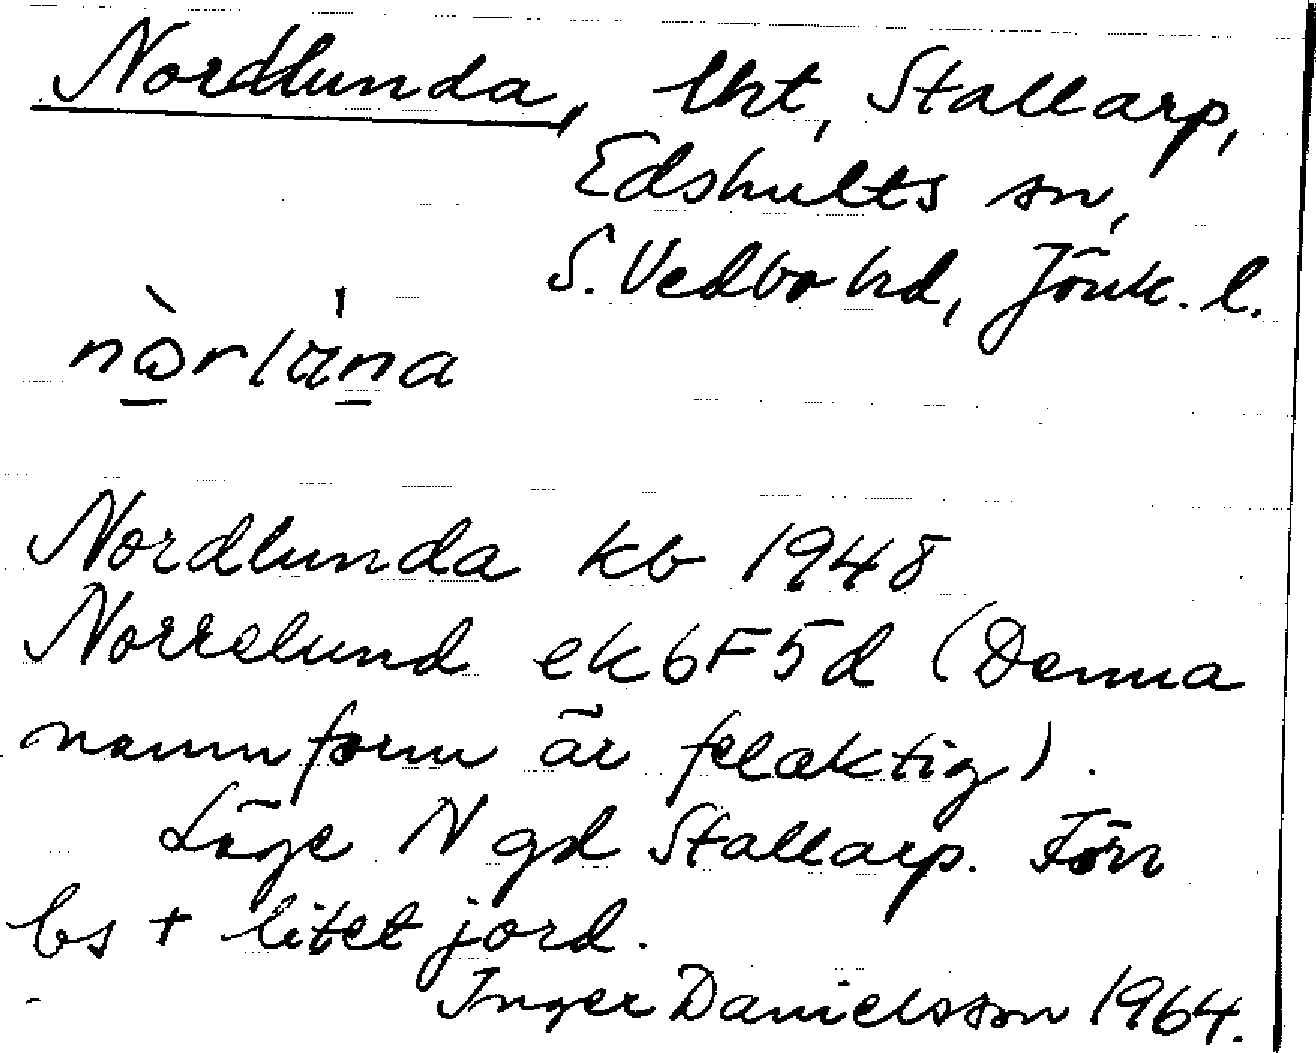 Nordlunda, lht, Stallarp,
Edshults sn,
S. Vedbo hd, Jönk. l.
Nordlunda kb 1948
Norrelund ekb F5d (Denna
namnform är felaktig).
Läge N gd Stallarp. Förr
bs + litet jord.
Inger Danielsson 1964.